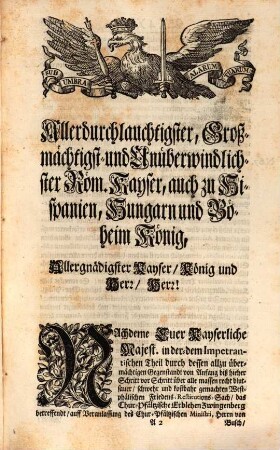 SUB UMBRA ALARUM TUARUM
Allerdurchlauchtigster, Groß-
mächtigst-und Unüberwindlich-
ster Röm. Kayser, auch zu Hi-
spanien, Hungarn und Bö-
heim König,
Allergnädigster Kayser/ König und
Herr/ Herr!
NAchdeme Euer Kayserliche
Majest. in der dem Impetran-
tischen Theil durch dessen allzu über-
mächtigen Gegenstand von Anfang biß hieher
Schritt vor Schritt über alle massen recht blut-
sauer/ schwehr und kostbahr gemachten West-
phälischen Friedens-Restitutions-Sach/ das
Chur-Pfältzische Erblehen Zwingenberg
betreffendt/ auff Veranlassung deß Chur-Pfältzischen Ministri, Herrn von
A 2 Busch/